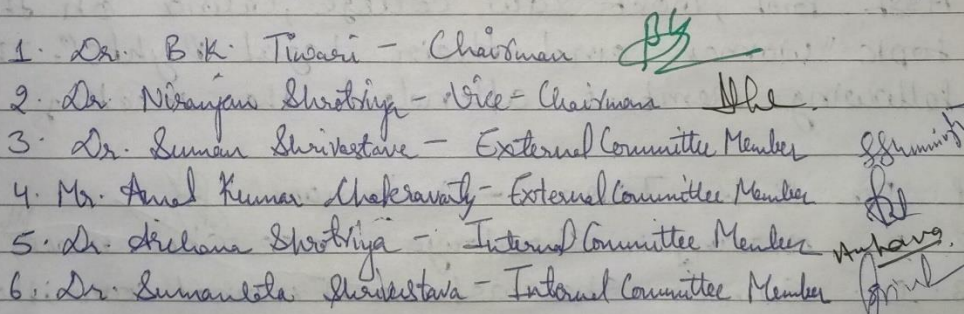 1. Dr. B.K. Tiwari - Chairman
2. Dr Niranjan Shrotriya - Vice-Chairman
3. Dr. Suman Shrivastave - External Committee Member
4. Mr. Amal Kumar Chakravarty - External Committee Member
5. Dr. Archana Shrotriya - Internal Committee Member
6. Dr. Sumanlata Shrivastava - Internal Committee Member